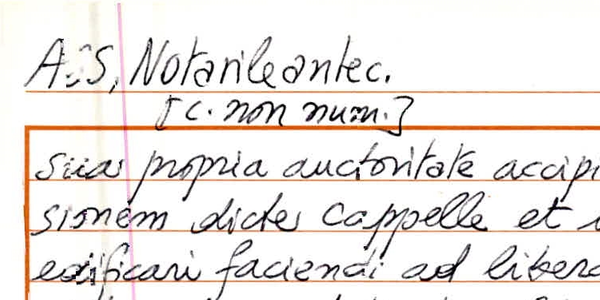 A.S, Notarile antec.
[c. non num.]
sua propria auctoritate accipi
sionem dicte cappelle et
edificari faciendi ad libera